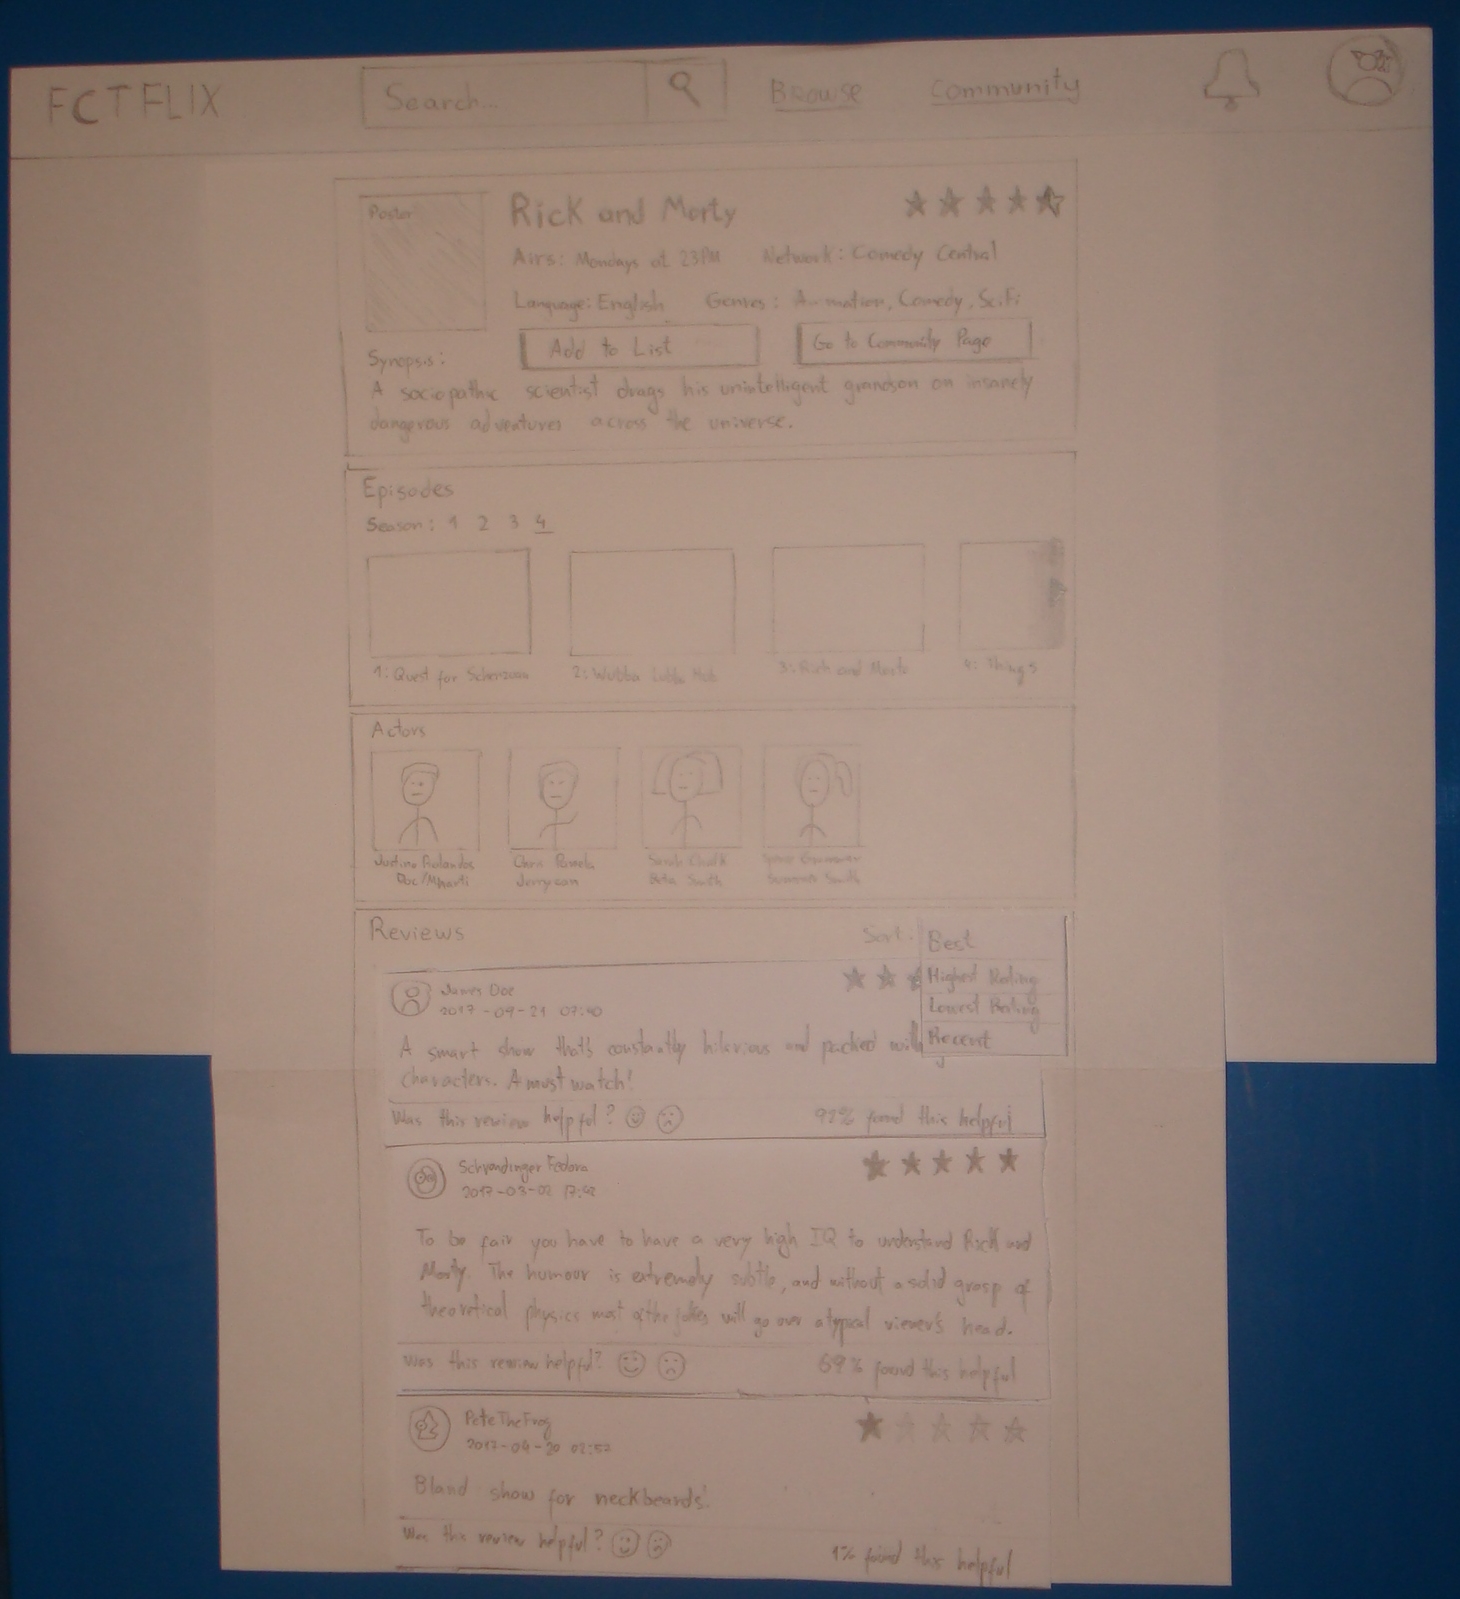 FCTFLIX
Search...
Browse
Community
Poster
Rick and Morty
Airs: Mondays at 23PM Network: Comedy Central
Language: English Genres: Animation, Comedy, SciFi
Add to List
Go to Community Page
Synopsis:
A sociopathic scientist drags his unintelligent grandson on insanely
dangerous adventures across the universe.
Episodes
Season: 1 2 3 4
1: Quest for
2: Wubba Lubba
3: Rich and
4: Things
Actors
Doc/Mharti
Chris
Jerrycan
Sarah
Smith
Summer Smith
Reviews
Sort:
Best
Highest Rating
Lowest Rating
Recent
James Doe
2017-09-21 07:40
A smart show that's constantly hilarious and packed with
characters. A must watch!
Was this review helpful?
92% found this helpful
Schrondinger Fedora
2017-03-02 17:42
To be fair you have to have a very high IQ to understand Rick and
Morty. The humour is extremely subtle, and without a solid grasp of
theoretical physics most of the jokes will go over a typical viewer's head.
Was this review helpful?
69% found this helpful
PeteTheFrog
2017-04-20 02:52
Bland show for neckbeards!
Was this review helpful?
1% found this helpful